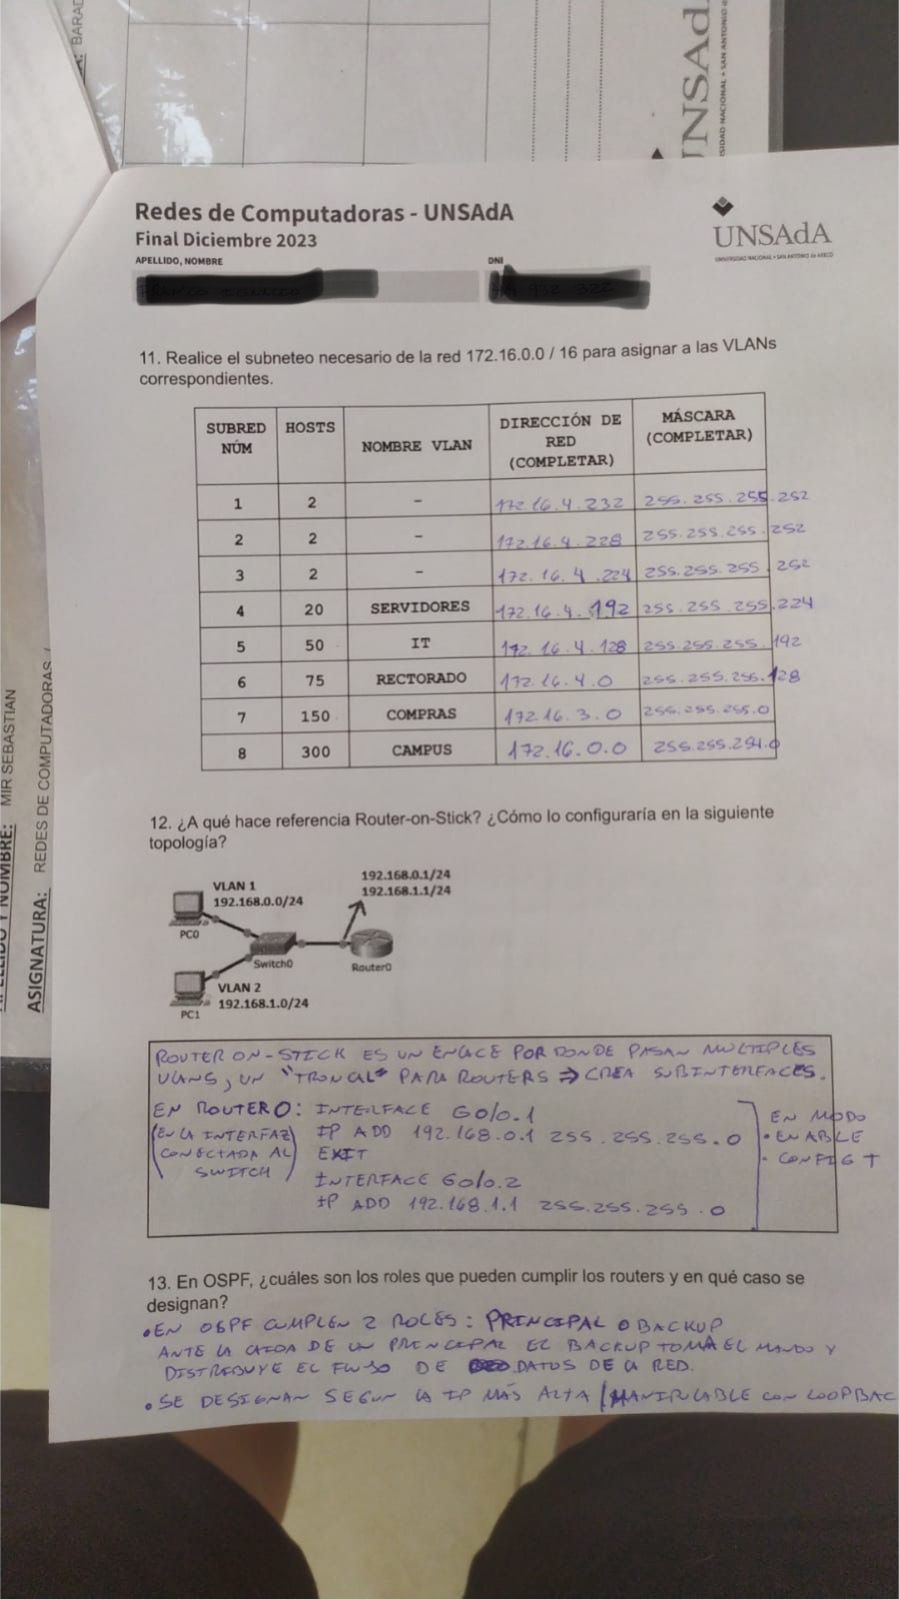 BARAD
UNSAd
SIDAD NACIONAL • SAN ANTONIO d
MIR SEBASTIAN
ASIGNATURA: REDES DE COMPUTADORAS /
Redes de Computadoras - UNSAdA
Final Diciembre 2023
APELLIDO, NOMBRE DNI
UNSAdA
UNIVERSIDAD NACIONAL • SAN ANTONIO de ARECO
11. Realice el subneteo necesario de la red 172.16.0.0 / 16 para asignar a las VLANs
correspondientes.
SUBRED NÚM HOSTS NOMBRE VLAN DIRECCIÓN DE RED (COMPLETAR) MÁSCARA (COMPLETAR)
1 2 - 172.16.4.232 255.255.255.252
2 2 - 172.16.4.228 255.255.255.252
3 2 - 172.16.4.224 255.255.255.252
4 20 SERVIDORES 172.16.4.192 255.255.255.224
5 50 IT 172.16.4.128 255.255.255.192
6 75 RECTORADO 172.16.4.0 255.255.255.128
7 150 COMPRAS 172.16.3.0 255.255.255.0
8 300 CAMPUS 172.16.0.0 255.255.254.0
12. ¿A qué hace referencia Router-on-Stick? ¿Cómo lo configuraría en la siguiente
topología?
192.168.0.1/24
192.168.1.1/24
VLAN 1
192.168.0.0/24
PC0
Switch0
Router0
VLAN 2
192.168.1.0/24
PC1
ROUTER ON-STICK ES UN ENLACE POR DONDE PASAN MULTIPLES
VLANS, UN "TRONCAL" PARA ROUTERS ⇒ CREA SUBINTERFACES.
EN ROUTER0: INTERFACE G0/0.1 EN MODO
(EN LA INTERFAZ IP ADD 192.168.0.1 255.255.255.0 • ENABLE
CONECTADA AL EXIT • CONFIG T
SWITCH) INTERFACE G0/0.2
IP ADD 192.168.1.1 255.255.255.0
13. En OSPF, ¿cuáles son los roles que pueden cumplir los routers y en qué caso se
designan?
• EN OSPF CUMPLEN 2 ROLES: PRINCIPAL O BACKUP
ANTE LA CAIDA DE UN PRINCIPAL EL BACKUP TOMA EL MANDO Y
DISTRIBUYE EL FLUJO DE DATOS DE LA RED.
• SE DESIGNAN SEGUN LA IP MÁS ALTA / MANIPULABLE CON LOOPBAC